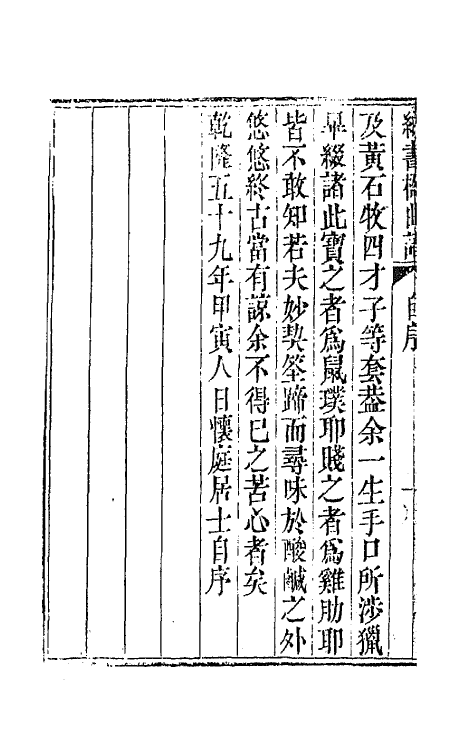 納書楹曲譜　自序
及黃石牧四才子等套葢余一生手口所涉獵
畢綴諸此寶之者爲鼠璞耶賤之者爲雞肋耶
皆不敢知若夫妙契筌蹄而尋味於酸鹹之外
悠悠終古當有諒余不得已之苦心者矣
乾隆五十九年甲寅人日懷庭居士自序